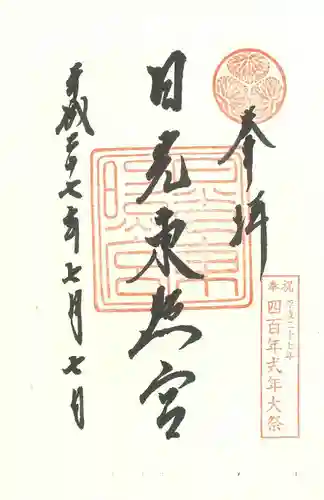 奉拝
日光東照宮
平成二十七年七月七日
奉祝
平成二十七年
四百年式年大祭
日光東照宮